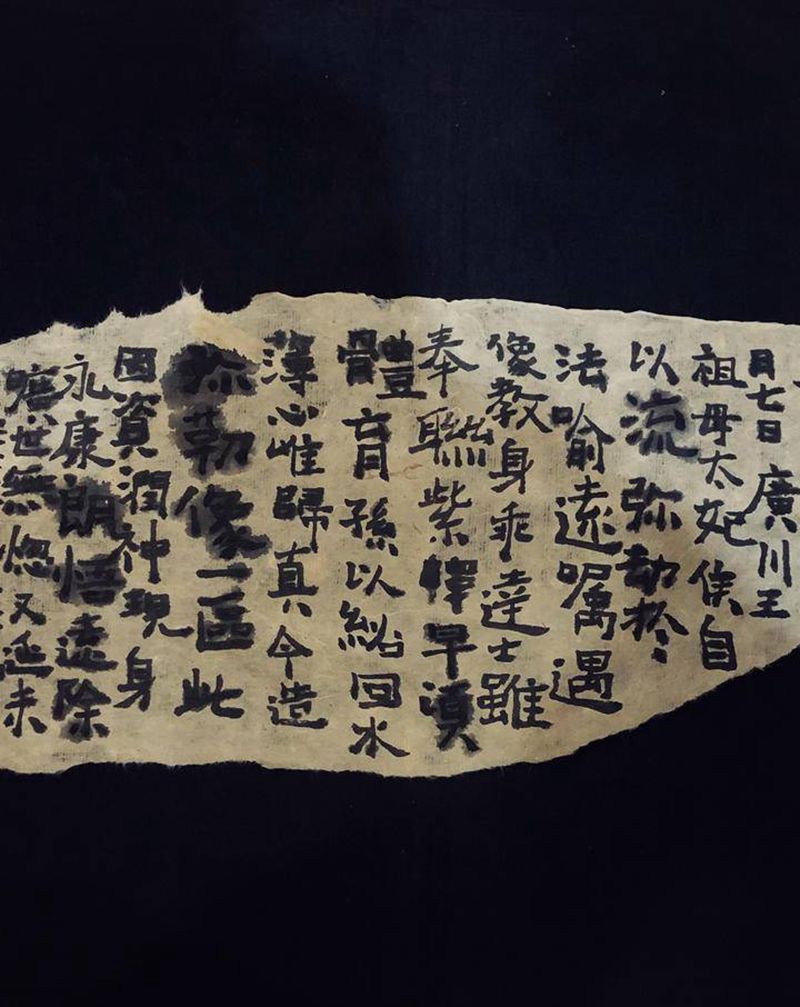 月七日廣川王
祖母太妃侯自
以流弥劫於
法喻遠嘱遇
像教身乖達士雖
奉聯紫暉早頃
體育孫以紹回水
薄心唯歸真今造
弥勒像一區此
因資潤神現身
永康朗悟遠除
曠世無惚又延未